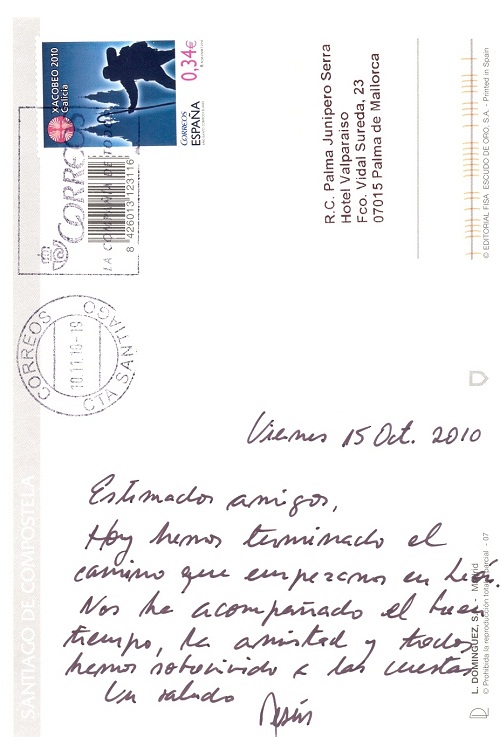 XACOBEO 2010
Galicia
0,34€
CORREOS
ESPAÑA
CORREOS
LA COMPAÑIA DE TODOS
8 426013 123116
CORREOS
10.11.10-19
CTA SANTIAGO
R.C. Palma Junipero Serra
Hotel Valparaiso
Fco. Vidal Sureda, 23
07015 Palma de Mallorca
© EDITORIAL FISA ESCUDO DE ORO, S.A. - Printed in Spain
SANTIAGO DE COMPOSTELA
Viernes 15 Oct. 2010
Estimados amigos,
Hoy hemos terminado el
camino que empezamos en León.
Nos ha acompañado el buen
tiempo, la amistad y todos
hemos sobrevivido a las cuestas
Un saludo
Jesús
L. DOMINGUEZ, S.A. - Madrid
© Prohibida la reproducción total o parcial - 07